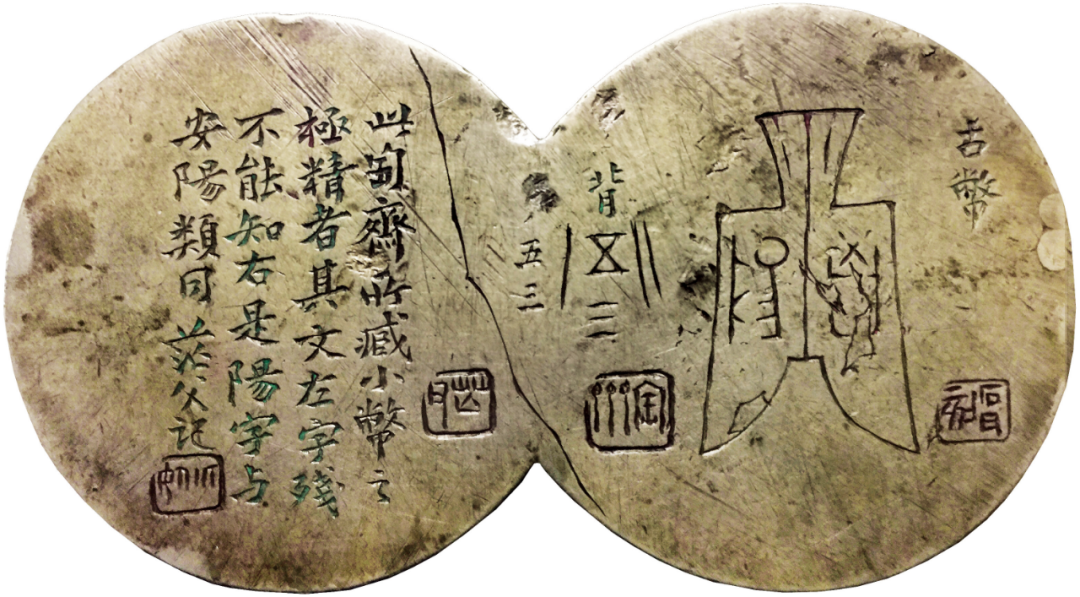 古幣
背
五
三
五三
此匋齋所臧小幣之
極精者其文左字殘
不能知右是陽字与
安陽類同 茫父記